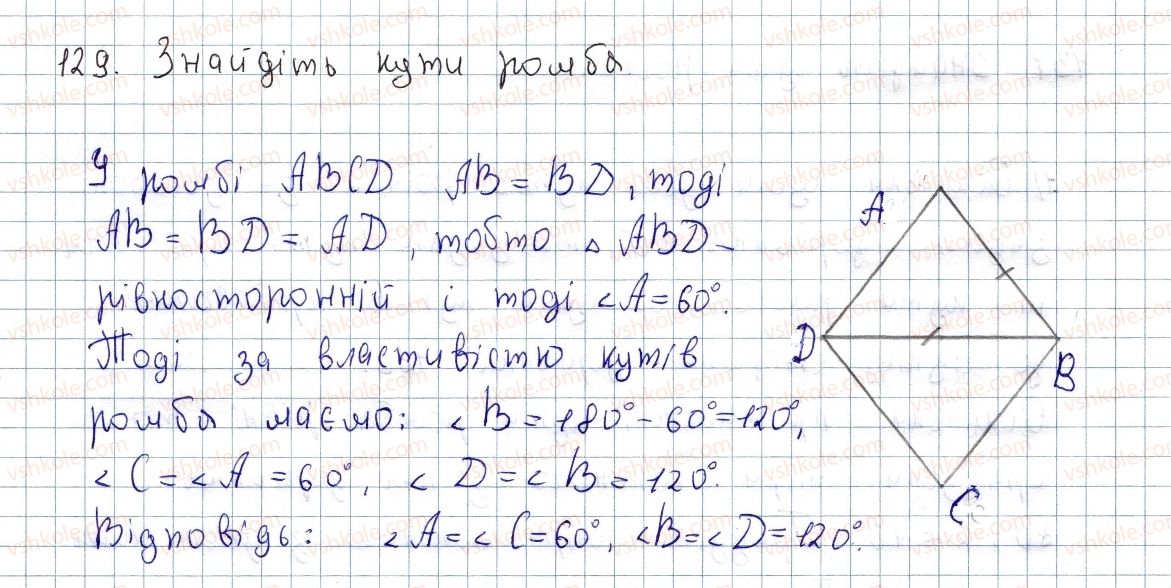 129. Знайдіть кути ромба
У ромбі ABCD AB = BD, тоді
AB = BD = AD, тобто △ ABD –
рівносторонній і тоді ∠A = 60°.
Тоді за властивістю кутів
ромба маємо: ∠B = 180° – 60° = 120°,
∠C = ∠A = 60°, ∠D = ∠B = 120°.
Відповідь: ∠A = ∠C = 60°, ∠B = ∠D = 120°.
A
D
B
C
vshkole.com